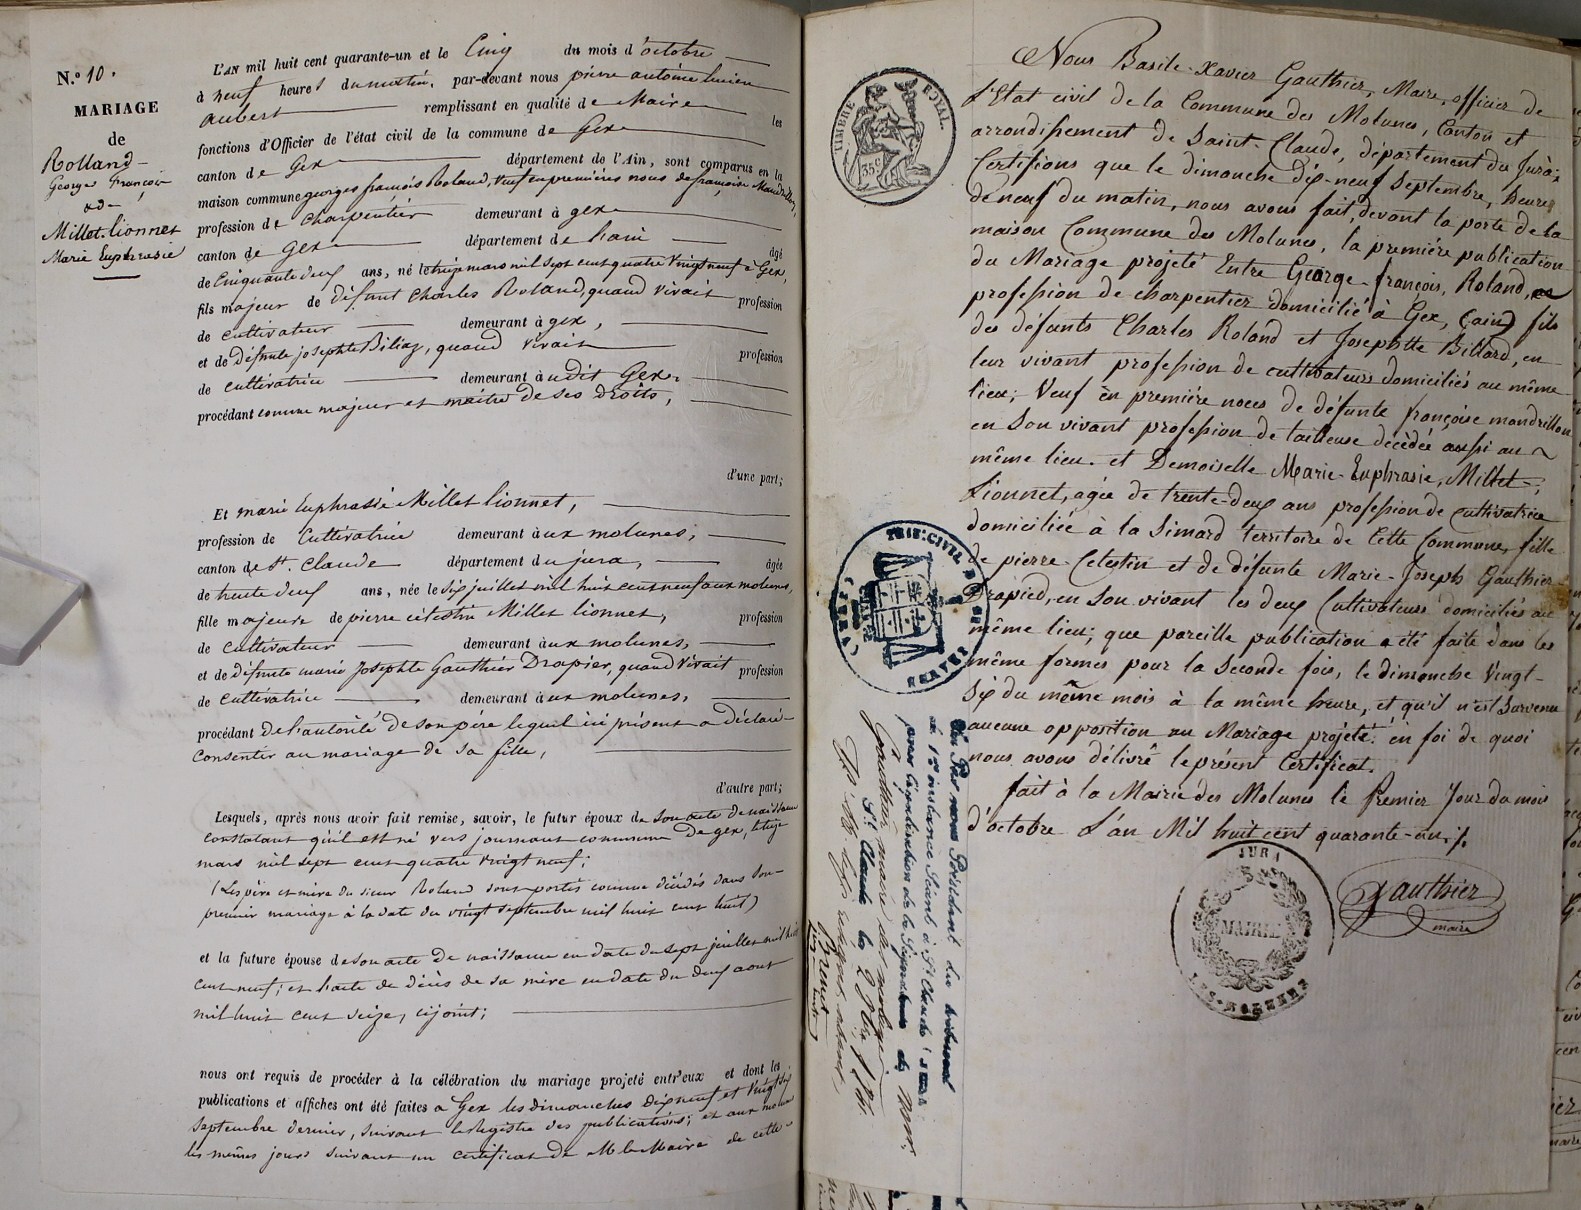 N.º 10.
MARIAGE
de
Rolland
Georges François
&
Millet-lionnet
Marie Euphrasie
L'AN mil huit cent quarante-un et le Cinq du mois d'octobre
à neuf heures du matin, par-devant nous pierre antoine lucien
aubert remplissant en qualité de Maire les
fonctions d'Officier de l'état civil de la commune de Gex
canton de Gex département de l'Ain, sont comparus en la
maison commune georges françois Roland, veuf en premières noces de françoise Mandrillon,
profession de charpentier demeurant à gex
canton de Gex département de l'ain âgé
de Cinquante deux ans, né le treize mars mil sept cent quatre vingt neuf à Gex,
fils majeur de défunt Charles Roland, quand vivait profession
de cultivateur demeurant à gex,
et de défunte josephte Billiaz, quand vivait profession
de cultivatrice demeurant à udit Gex.
procédant comme majeur et maitre de ses droits,
d'une part;
Et marie Euphrasie Millet lionnet,
profession de Cultivatrice demeurant à ux molunes,
canton de St. Claude département du jura, âgée
de trente deux ans, née le six juillet mil huit cent neuf aux molunes,
fille majeure de pierre célestin Millet lionnet, profession
de cultivateur demeurant à ux molunes,
et de défunte marie Josephte Gauthier Drapier, quand vivait profession
de cultivatrice demeurant à ux molunes,
procédant de l'autorité de son père lequel ici présent a déclaré
consentir au mariage de sa fille,
d'autre part;
Lesquels, après nous avoir fait remise, savoir, le futur époux de son acte de naissance
constatant qu'il est né vers journans commune de gex, le treize
mars mil sept cent quatre vingt neuf;
(Les père et mère du sieur Roland sont portés comme décédés dans son
premier mariage à la date du vingt septembre mil huit cent huit)
et la future épouse de son acte de naissance en date du sept juillet mil huit
cent neuf; et l'acte de décès de sa mère en date du deux aout
mil huit cent seize, cijoint;
nous ont requis de procéder à la célébration du mariage projeté entr'eux et dont les
publications et affiches ont été faites a Gex les dimanches dix neuf et vingt six
septembre dernier, suivant le registre des publications; et aux molunes
les mêmes jours suivant un certificat de Mr le Maire de cette
TIMBRE ROYAL.
35 c
Nous Basile-Xavier Gauthier, Maire, officier de
L'Etat civil de la Commune des Molunes, Canton et
arrondissement de Saint-Claude, département du Jura;
Certifions que le dimanche dix-neuf septembre, heure
de neuf du matin, nous avons fait, devant la porte de la
maison Commune des Molunes, la première publication
du Mariage projeté Entre George-françois, Roland,
profession de charpentier domicilié à Gex, (ain) fils
des défunts Charles Roland et Josephtte Billard, en
leur vivant profession de cultivateurs domiciliés au même
lieu; Veuf en première noces de défunte françoise mandrillon
en son vivant profession de tailleuse décédée aussi au
même lieu. et Demoiselle Marie-Euphrasie, Millet-
Lionnet, agée de trente-deux ans profession de cultivatrice
domiciliée à la Simard territoire de Cette Commune, fille
de pierre-Celestin et de défunte Marie-Joseph Gauthier
Drapied, en son vivant les deux Cultivateurs domiciliés au
même lieu; que pareille publication a été faite dans les
même formes pour la seconde fois, le dimanche vingt-
six du même mois à la même heure, et qu'il n'est survenu
aucune opposition au Mariage projeté. en foi de quoi
nous avons délivré le présent Certificat.
fait à la Mairie des Molunes le premier Jour du mois
d'octobre L'an Mil huit cent quarante-un.
Gauthier
maire
JURA
MAIRIE
Vu Par nous Président du tribunal
de 1re instance Séant à St. Claude (Jura
pour légalisation de la Signature de Mr.
Gauthier maire des molunes
St. Claude le 2 8bre 1841.